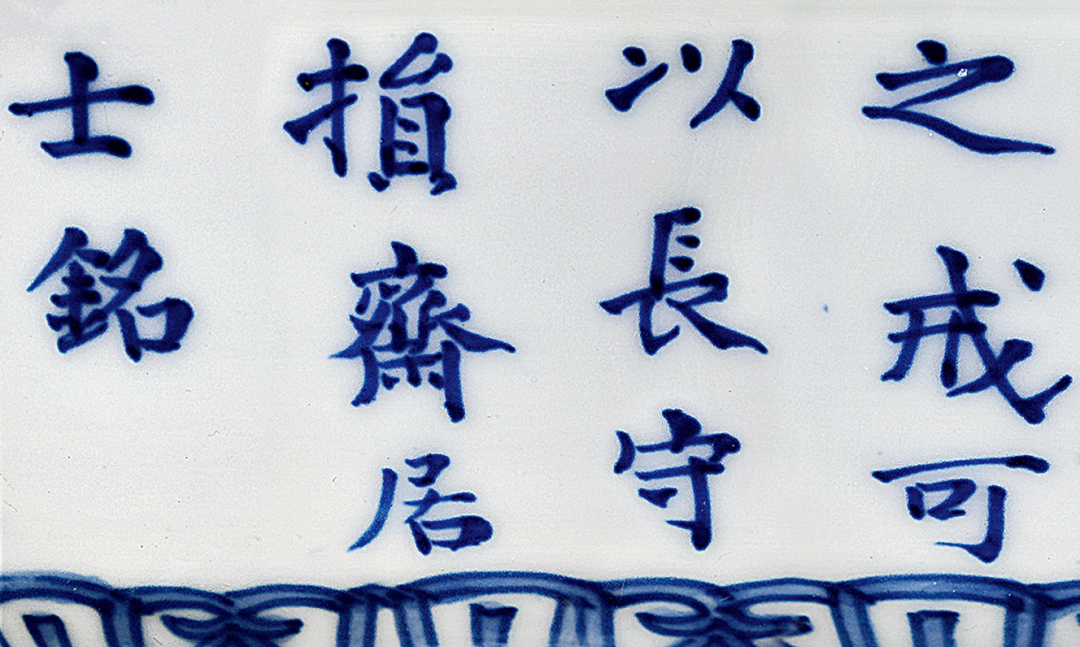 之戒可
以長守
損齋居
士銘